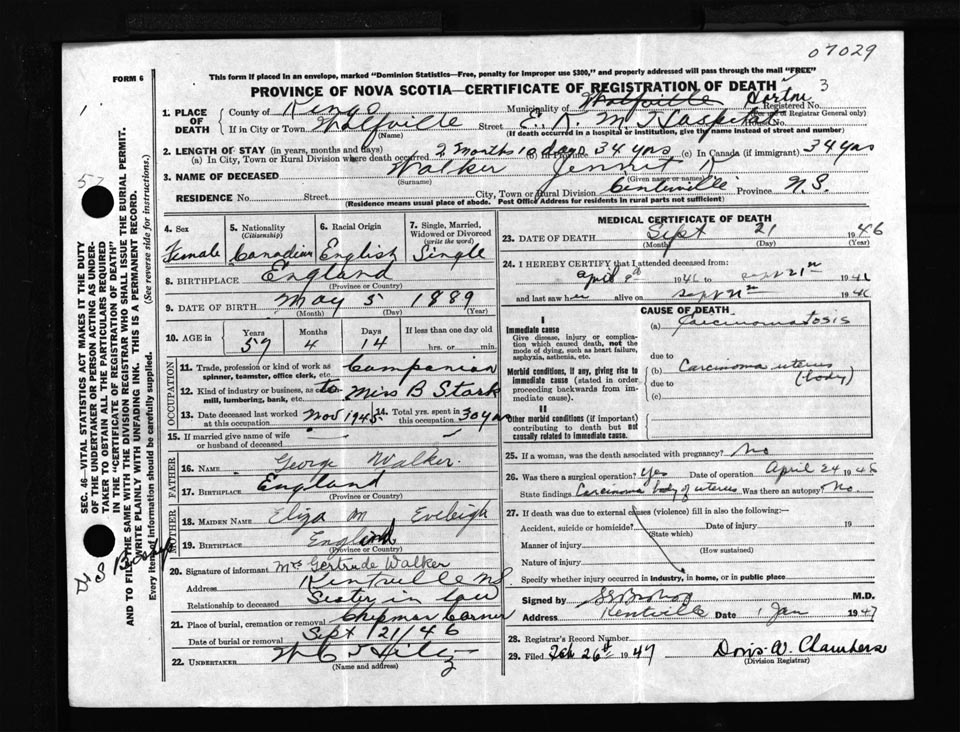 07029
FORM 6
This form if placed in an envelope, marked "Dominion Statistics—Free, penalty for improper use $300," and properly addressed will pass through the mail "FREE"
PROVINCE OF NOVA SCOTIA—CERTIFICATE OF REGISTRATION OF DEATH 3
1. PLACE OF DEATH County of Kings Municipality of Wolfville Registered No.
(For use of Registrar General only)
If in City or Town Wolfville Street E. K. M. Hospital House No.
(Name) (If death occurred in a hospital or institution, give the name instead of street and number)
2. LENGTH OF STAY (in years, months and days)
(a) In City, Town or Rural Division where death occurred 2 months 10 days (b) In Province 34 yrs (c) In Canada (if immigrant) 34 yrs
3. NAME OF DECEASED Walker
(Surname) (Given name or names)
RESIDENCE No. Street City, Town or Rural Division Centerville Province N.S.
(Residence means usual place of abode. Post Office Address for residents in rural parts not sufficient)
4. Sex 5. Nationality (Citizenship) 6. Racial Origin 7. Single, Married, Widowed or Divorced (write the word)
Female Canadian English Single
8. BIRTHPLACE England
(Province or Country)
9. DATE OF BIRTH May 5 1889
(Month) (Day) (Year)
10. AGE in Years Months Days If less than one day old
57 4 14 hrs. or min.
OCCUPATION
11. Trade, profession or kind of work as spinner, teamster, office clerk, etc. Companion
12. Kind of industry or business, as mill, lumbering, bank, etc. to Miss B Stark
13. Date deceased last worked at this occupation Nov 1945 14. Total yrs. spent in this occupation 30 yrs
15. If married give name of wife or husband of deceased
FATHER
16. NAME George Walker.
17. BIRTHPLACE England
(Province or Country)
MOTHER
18. MAIDEN NAME Eliza M Eveleigh
19. BIRTHPLACE England
(Province or Country)
20. Signature of informant Mrs Gertrude Walker
Address Kentville NS
Relationship to deceased Sister in law
21. Place of burial, cremation or removal Chipman Corner
Date of burial or removal Sept 21/46
22. UNDERTAKER
(Name and address)
MEDICAL CERTIFICATE OF DEATH
23. DATE OF DEATH Sept 21 1946
(Month) (Day) (Year)
24. I HEREBY CERTIFY that I attended deceased from:
April 9th 1946 to Sept 21st 1946
and last saw her alive on Sept 21st 1946
CAUSE OF DEATH
I
Immediate cause
Give disease, injury or complication which caused death, not the mode of dying, such as heart failure, asphyxia, asthenia, etc.
(a) Carcinomatosis
due to
Morbid conditions, if any, giving rise to immediate cause (stated in order proceeding backwards from immediate cause).
(b) Carcinoma uterus (body)
due to
(c)
II
Other morbid conditions (if important) contributing to death but not causally related to immediate cause.
25. If a woman, was the death associated with pregnancy? No
26. Was there a surgical operation? Yes Date of operation April 24 194
State findings Carcinoma body of uterus Was there an autopsy? No.
27. If death was due to external causes (violence) fill in also the following:—
Accident, suicide or homicide? Date of injury 19
(State which)
Manner of injury
(How sustained)
Nature of injury
Specify whether injury occurred in industry, in home, or in public place
Signed by M.D.
Address Kentville Date 1 Jan 1947
28. Registrar's Record Number
29. Filed Feb 26th 1947 Doris W. Chambers
(Division Registrar)
SEC. 46—VITAL STATISTICS ACT MAKES IT THE DUTY
OF THE UNDERTAKER OR PERSON ACTING AS UNDERTAKER
TO OBTAIN ALL THE PARTICULARS REQUIRED
IN THE "CERTIFICATE OF REGISTRATION OF DEATH"
AND TO FILE THE SAME WITH THE DIVISION REGISTRAR WHO SHALL ISSUE THE BURIAL PERMIT.
WRITE PLAINLY WITH UNFADING INK. THIS IS A PERMANENT RECORD.
Every item of information should be carefully supplied. (See reverse side for instructions.)